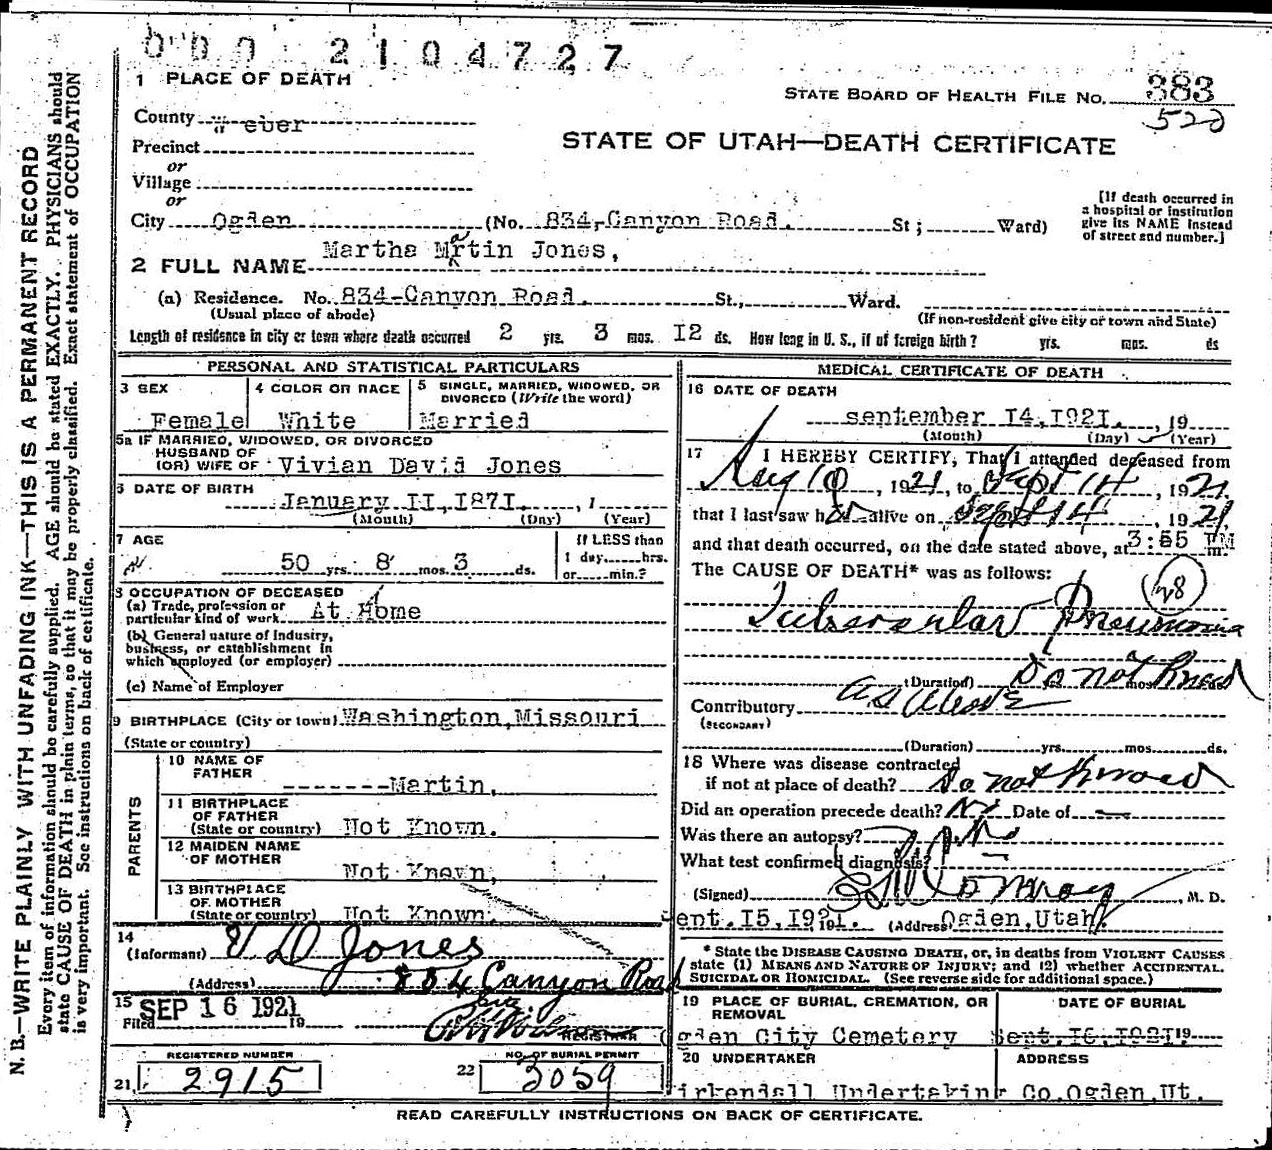 000 2104727
1 PLACE OF DEATH
STATE BOARD OF HEALTH FILE No. 383
522
County Weber
STATE OF UTAH—DEATH CERTIFICATE
Precinct
or
Village
or
City Ogden (No. 834-Canyon Road. St; Ward)
[If death occurred in a hospital or institution give its NAME instead of street and number.]
2 FULL NAME Martha Martin Jones,
(a) Residence. No. 834-Canyon Road. St., Ward.
(Usual place of abode) (If non-resident give city or town and State)
Length of residence in city or town where death occurred 2 yrs. 3 mos. I2 ds. How long in U. S., if of foreign birth? yrs. mos. ds
PERSONAL AND STATISTICAL PARTICULARS
3 SEX Female
4 COLOR OR RACE White
5 SINGLE, MARRIED, WIDOWED, OR DIVORCED (Write the word) Married
5a IF MARRIED, WIDOWED, OR DIVORCED
HUSBAND OF
(OR) WIFE OF Vivian David Jones
6 DATE OF BIRTH
January II,I87I. , 1
(Month) (Day) (Year)
7 AGE
50 yrs. 8 mos. 3 ds.
If LESS than
1 day, hrs.
or min.?
8 OCCUPATION OF DECEASED
(a) Trade, profession or particular kind of work At Home
(b) General nature of Industry, business, or establishment in which employed (or employer)
(c) Name of Employer
9 BIRTHPLACE (City or town) Washington,Missouri
(State or country)
PARENTS
10 NAME OF FATHER -------Martin,
11 BIRTHPLACE OF FATHER (State or country) Not Known.
12 MAIDEN NAME OF MOTHER Not Known,
13 BIRTHPLACE OF MOTHER (State or country) Not Known.
14
(Informant) V D Jones
(Address) 834 Canyon Road
15
Filed SEP 16 1921 19
REGISTRAR
REGISTERED NUMBER
21 2915
NO. OF BURIAL PERMIT
22 3059
MEDICAL CERTIFICATE OF DEATH
16 DATE OF DEATH
september I4,I92I. , 19
(Month) (Day) (Year)
17 I HEREBY CERTIFY, That I attended deceased from
Aug 10 , 1921, to Sept 14 , 1921
that I last saw her alive on Sept 14 , 1921
and that death occurred, on the date stated above, at 3:55 PM m.
The CAUSE OF DEATH* was as follows:
28
Tubercular Pneumonia
(Duration) yrs. mos. ds.
Do not know
Contributory as above
(SECONDARY)
(Duration) yrs. mos. ds.
18 Where was disease contracted
if not at place of death? Do not know
Did an operation precede death? No Date of —
Was there an autopsy? No
What test confirmed diagnosis? —
(Signed) Conroy M. D.
ept.I5,I921. 191. (Address) Ogden,Utah.
* State the DISEASE CAUSING DEATH, or, in deaths from VIOLENT CAUSES state (1) MEANS AND NATURE OF INJURY; and (2) whether ACCIDENTAL, SUICIDAL OR HOMICIDAL. (See reverse side for additional space.)
19 PLACE OF BURIAL, CREMATION, OR REMOVAL
gden City Cemetery
DATE OF BURIAL
Sept.I6,I92I 19
20 UNDERTAKER
irkendall Undertaking
ADDRESS
Co.Ogden,Ut.
READ CAREFULLY INSTRUCTIONS ON BACK OF CERTIFICATE.
N. B.—WRITE PLAINLY WITH UNFADING INK—THIS IS A PERMANENT RECORD
Every item of information should be carefully supplied. AGE should be stated EXACTLY. PHYSICIANS should
state CAUSE OF DEATH in plain terms, so that it may be properly classified. Exact statement of OCCUPATION
is very important. See instructions on back of certificate.